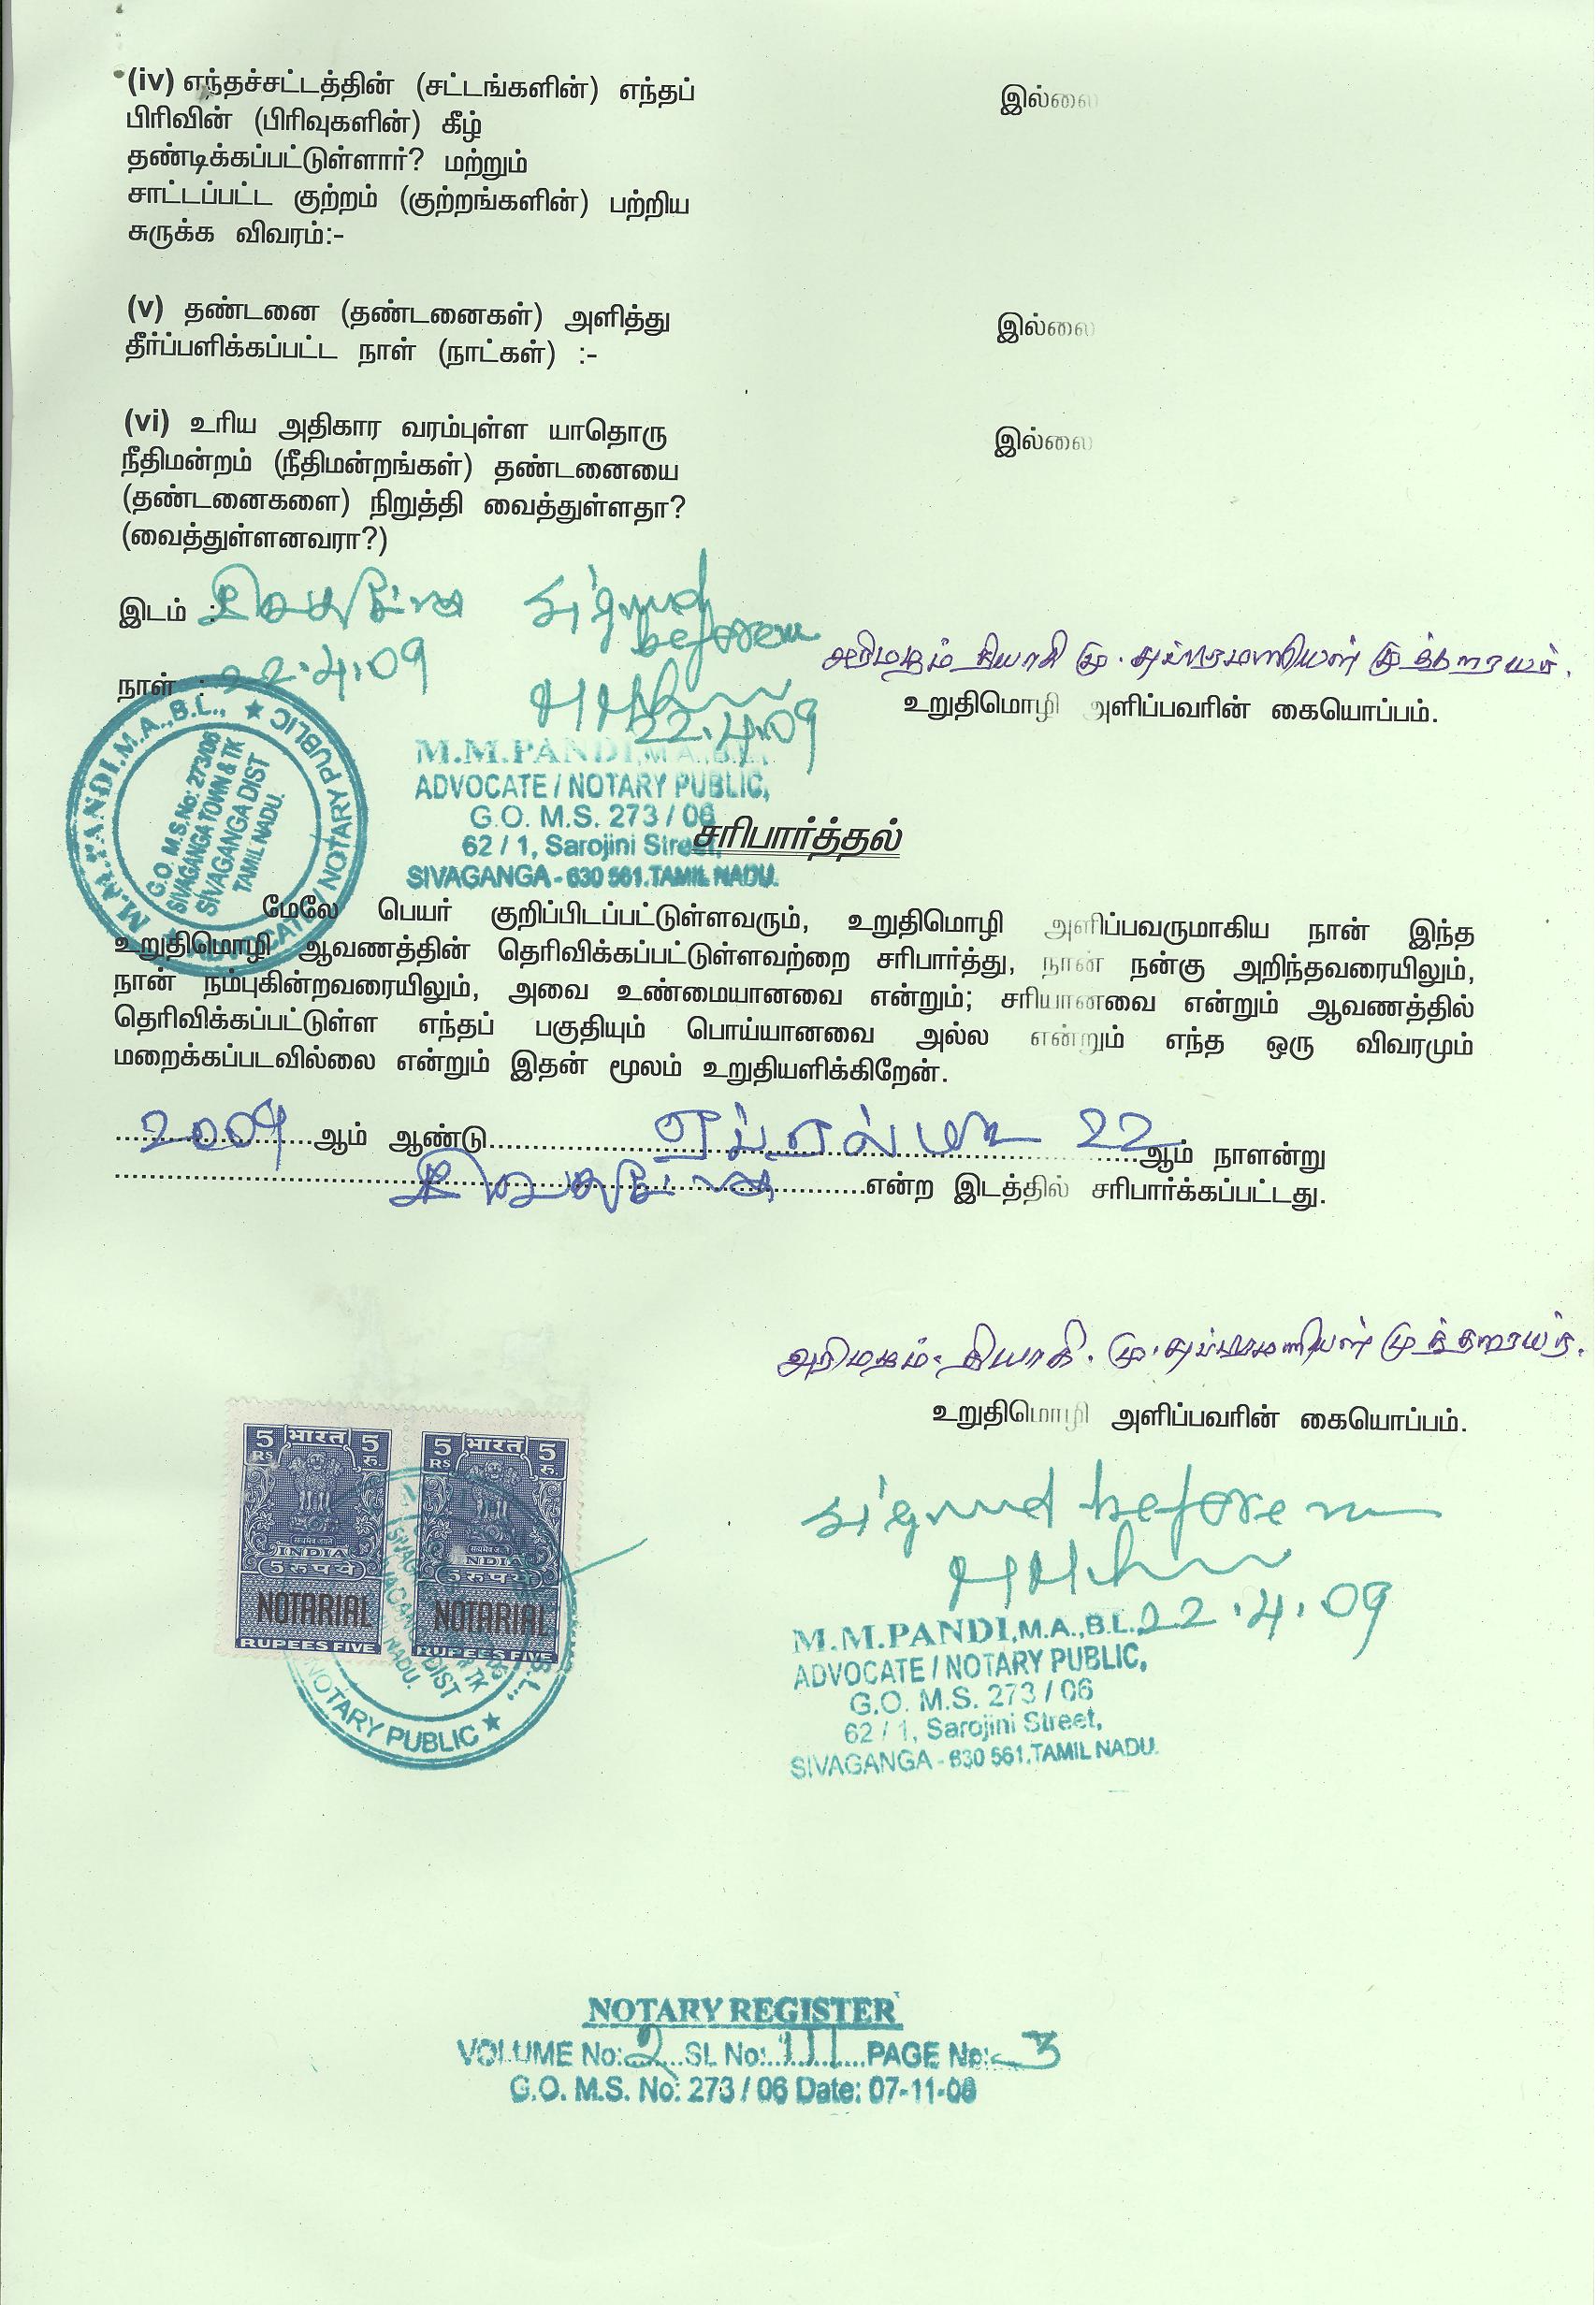 (iv) எந்தச்சட்டத்தின் (சட்டங்களின்) எந்தப்
இல்லை
பிரிவின் (பிரிவுகளின்) கீழ்
தண்டிக்கப்பட்டுள்ளார்? மற்றும்
சாட்டப்பட்ட குற்றம் (குற்றங்களின்) பற்றிய
சுருக்க விவரம்:-
(v) தண்டனை (தண்டனைகள்) அளித்து
இல்லை
தீர்ப்பளிக்கப்பட்ட நாள் (நாட்கள்) :-
(vi) உரிய அதிகார வரம்புள்ள யாதொரு
இல்லை
நீதிமன்றம் (நீதிமன்றங்கள்) தண்டனையை
(தண்டனைகளை) நிறுத்தி வைத்துள்ளதா?
(வைத்துள்ளனவரா?)
இடம் :
Signed
before me
அரிமளம் தியாகி மு. சுப்பிரமணியன் முத்தரையர்.
நாள் : 22.4.09
உறுதிமொழி அளிப்பவரின் கையொப்பம்.
22.4.09
M.M.PANDI,M.A.,B.L., ★ ADVOCATE / NOTARY PUBLIC ★
G.O. M.S.No: 273/06
SIVAGANGA TOWN & TK
SIVAGANGA DIST
TAMIL NADU.
M.M.PANDI,M.A.,B.L.,
ADVOCATE / NOTARY PUBLIC,
G.O. M.S. 273 / 06
62 / 1, Sarojini Street,
SIVAGANGA - 630 561.TAMIL NADU.
சரிபார்த்தல்
மேலே பெயர் குறிப்பிடப்பட்டுள்ளவரும், உறுதிமொழி அளிப்பவருமாகிய நான் இந்த
உறுதிமொழி ஆவணத்தின் தெரிவிக்கப்பட்டுள்ளவற்றை சரிபார்த்து, நான் நன்கு அறிந்தவரையிலும்,
நான் நம்புகின்றவரையிலும், அவை உண்மையானவை என்றும்; சரியானவை என்றும் ஆவணத்தில்
தெரிவிக்கப்பட்டுள்ள எந்தப் பகுதியும் பொய்யானவை அல்ல என்றும் எந்த ஒரு விவரமும்
மறைக்கப்படவில்லை என்றும் இதன் மூலம் உறுதியளிக்கிறேன்.
2009 ஆம் ஆண்டு ஏப்ரல் 22 ஆம் நாளன்று
என்ற இடத்தில் சரிபார்க்கப்பட்டது.
அரிமளம். தியாகி. மு.சுப்பிரமணியன் முத்தரையர்.
உறுதிமொழி அளிப்பவரின் கையொப்பம்.
5 भारत 5
RS रु.
INDIA
5 रुपये
NOTARIAL
RUPEES FIVE
5 भारत 5
RS रु.
INDIA
5 रुपये
NOTARIAL
RUPEES FIVE
NOTARY PUBLIC ★
Signed before me
22.4.09
M.M.PANDI,M.A.,B.L.,
ADVOCATE / NOTARY PUBLIC,
G.O. M.S. 273 / 06
62 / 1, Sarojini Street,
SIVAGANGA - 630 561.TAMIL NADU.
NOTARY REGISTER
VOLUME No: 2 SL No: 111 PAGE No: 3
G.O. M.S. No: 273 / 06 Date: 07-11-06